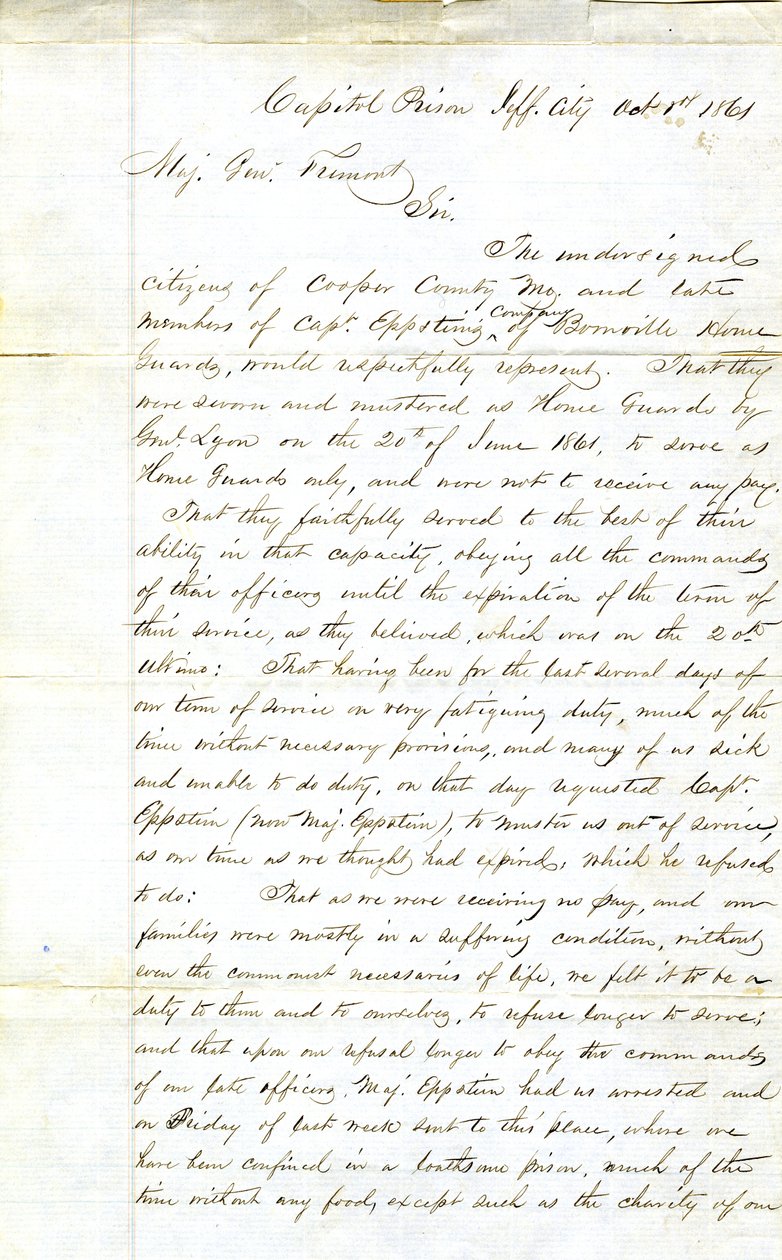 Capitol Prison Jeff. City Oct 1st 1861
Maj. Genl. Fremont
Sir.
The undersigned
citizens of Cooper County Mo. and late
members of Capt. Eppstein's company of Boonville Home
Guards, would respectfully represent. That they
were sworn and mustered as Home Guards by
Genl. Lyon on the 20th of June 1861, to serve as
Home Guards only, and were not to receive any pay.
That they faithfully served to the best of their
ability in that capacity, obeying all the commands
of their officers until the expiration of the term of
their service, as they believed, which was on the 20th
Ultimo: That having been for the last several days of
our term of service on very fatiguing duty, much of the
time without necessary provisions, and many of us sick
and unable to do duty, on that day requested Capt.
Eppstein (now Maj. Eppstein), to muster us out of service,
as our time as we thought had expired, which he refused
to do: That as we were receiving no pay, and our
families were mostly in a suffering condition, without
even the commonest necessaries of life, we felt it to be a
duty to them and to ourselves, to refuse longer to serve;
and that upon our refusal longer to obey the commands
of our late officers, Maj. Eppstein had us arrested and
on Friday of last week sent to this place, where we
have been confined in a loathsome prison, much of the
time without any food, except such as the charity of our